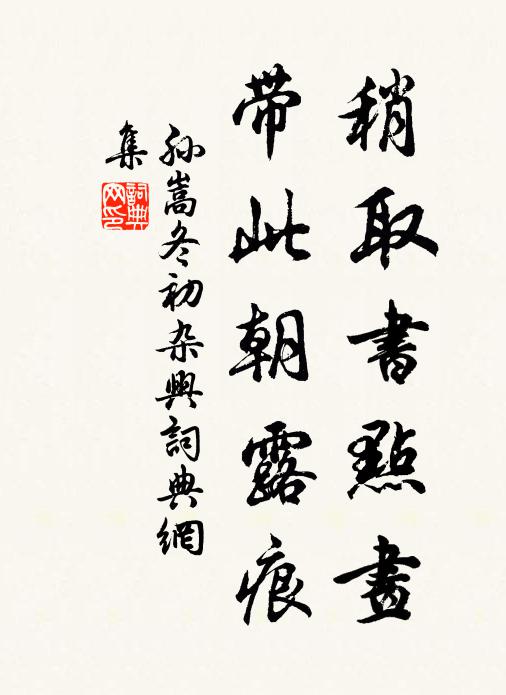 稍取書點畫
帶此朝露痕
孙嵩冬初杂興詞典網
集
詞典
网印